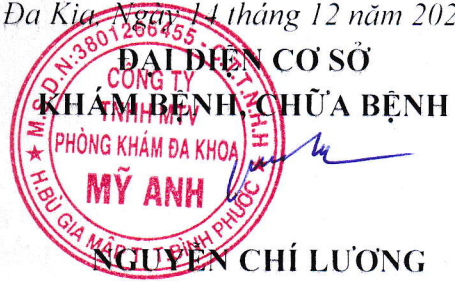 Đa Kia, Ngày 14 tháng 12 năm 202
ĐẠI DIỆN CƠ SỞ
KHÁM BỆNH, CHỮA BỆNH
M.S.D.N:3801266455-C.T.T.N.H.H
CÔNG TY
TNHH MTV
PHÒNG KHÁM ĐA KHOA
MỸ ANH
H.BÙ GIA MẬP-T.BÌNH PHƯỚC
NGUYỄN CHÍ LƯƠNG